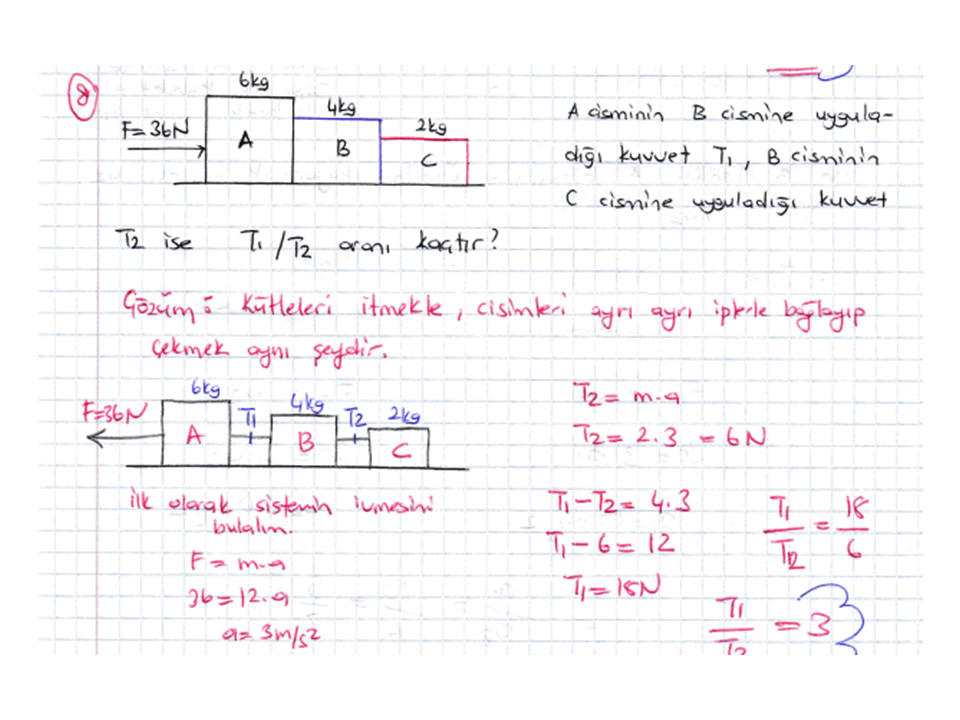 8
6kg
4kg
2kg
F=36N
A
B
C
A cisminin B cismine uygula-
dığı kuvvet T1, B cisminin
C cismine uyguladığı kuvvet
T2 ise T1/T2 oranı kaçtır?
Çözüm: Kütleleri itmekle, cisimleri ayrı ayrı iplerle bağlayıp
çekmek aynı şeydir.
6kg
4kg
2kg
F=36N
T1
T2
A
B
C
ilk olarak sistemin ivmesini
bulalım.
F = m.a
36=12.a
a=3m/s2
T2= m.a
T2= 2.3 = 6N
T1-T2= 4.3
T1-6=12
T1=18N
T1/T2 = 18/6
T1/T2 = 3